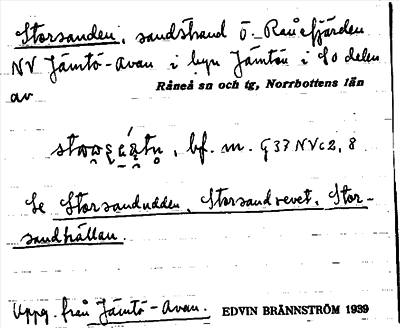 Storsanden, sandstrand ö. Rånefjärden
NV Jämtö-Avan i byn Jämtön i SO delen
av Råneå sn och tg, Norrbottens län
bf. m. G 33 NV c 2, 8
Se Storsandudden, Storsandrevet, Stor-
sandhällan.
Uppg. från Jämtö-Avan. EDVIN BRÄNNSTRÖM 1939